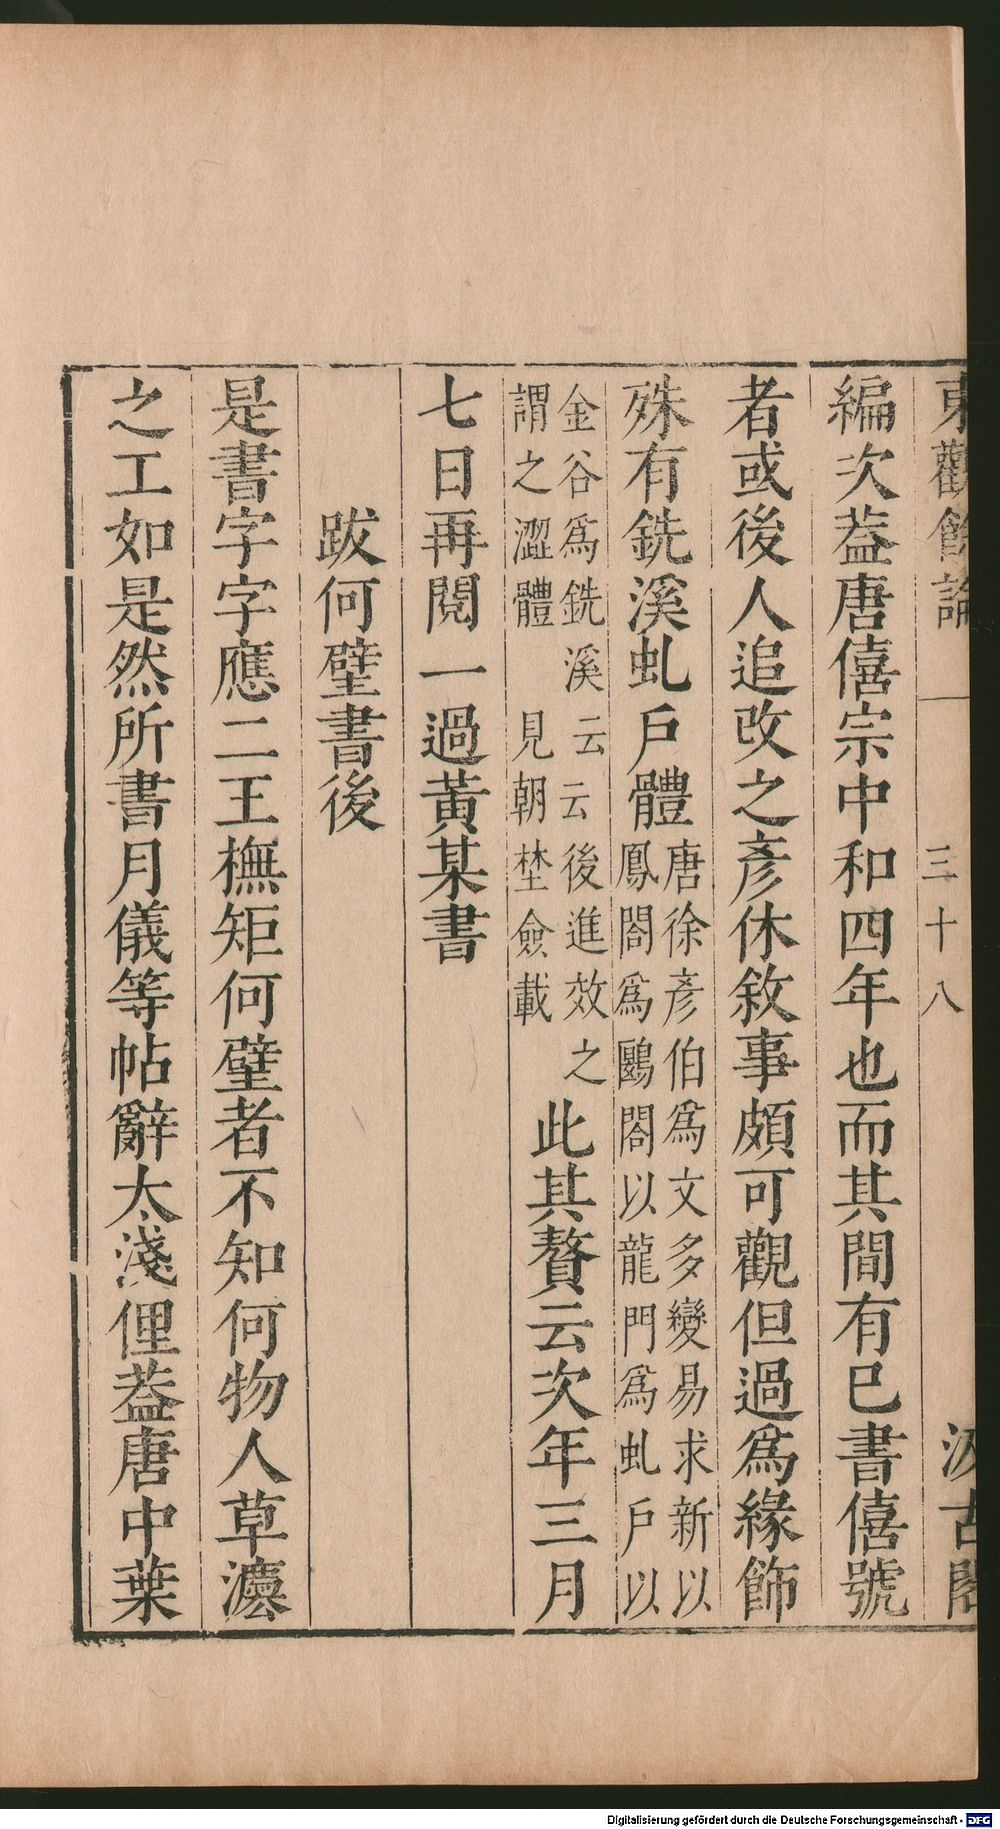 東觀餘論 一 三十八 汲古閣
編次葢唐僖宗中和四年也而其間有巳書僖號
者或後人追改之彥休敘事頗可觀但過爲緣飾
殊有銑溪虬戶體唐徐彥伯爲文多變易求新以
鳳閣爲鷗閣以龍門爲虬戶以
金谷爲銑溪云云後進效之
謂之澀體見朝埜僉載
此其贅云次年三月
七日再閱一過黃某書
跋何壁書後
是書字字應二王橅矩何壁者不知何物人草灋
之工如是然所書月儀等帖辭太淺俚葢唐中葉
Digitalisierung gefördert durch die Deutsche Forschungsgemeinschaft - DFG